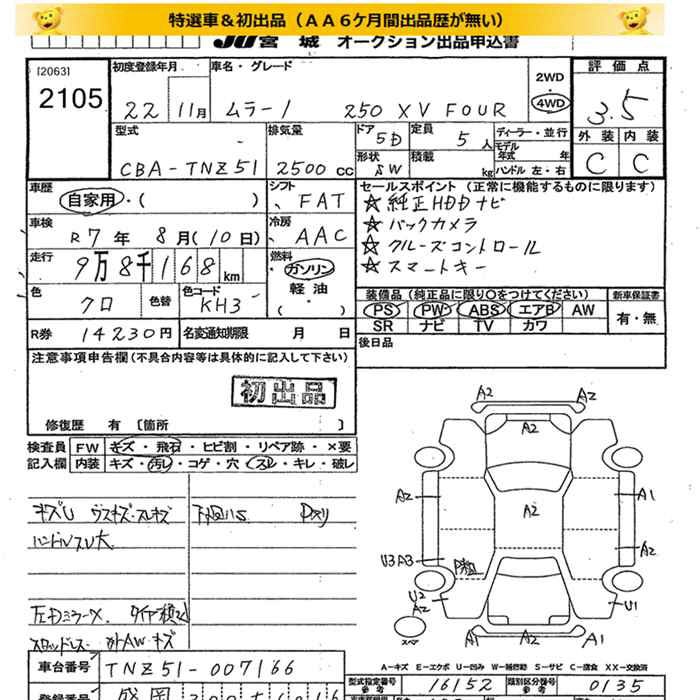 特選車＆初出品（ＡＡ６ケ月間出品歴が無い）
JU宮城 オークション出品申込書
[2063]
2105
初度登録年月
22 11月
車名・グレード
ムラーノ 250 XV FOUR
2WD
・
4WD
評価点
3.5
型式
CBA-TNZ51
排気量
2500 cc
ドア 5D
定員 5人
形状 SW
積載 kg
ディーラー・並行
モデル年式 年
ハンドル 左・右
外装 内装
C C
車歴
自家用・( )
シフト
FAT
車検
R7年 8月(10日)
冷房
AAC
走行
9万8千168km
燃料
ガソリン
軽油
色
クロ
色替
色コード
KH3
R券 14230円
名変通知期限 月 日
セールスポイント（正常に機能するものに限ります）
☆純正HDDナビ
☆バックカメラ
☆クルーズコントロール
☆スマートキー
装備品（純正品に限り○をつけてください）
新車保証書
PS PW ABS エアB AW
SR ナビ TV カワ
有・無
後日品
注意事項申告欄(不具合内容等は具体的に記入して下さい)
初出品
修復歴 有〔箇所 〕
検査員記入欄
FW キズ・飛石・ヒビ割・リペア跡・×要
内装 キズ・汚レ・コゲ・穴・スレ・キレ・破レ
キズU ウスキズ・スレキズ
ハンドルスレ大
下回りS
タイヤ積込
スタッドレス 外AWキズ
A2 A2
A2
A2
A2
A2
A1
A2
U3 A3
U2
A2
U1
A1 A1
スペア
A-キズ E-エクボ U-凹み W-補修跡 S-サビ C-腐食 XX-交換済
車台番号 TNZ51-007166
型式指定番号 参考 16152
類別区分番号 参考 0135
登録番号 盛岡 300